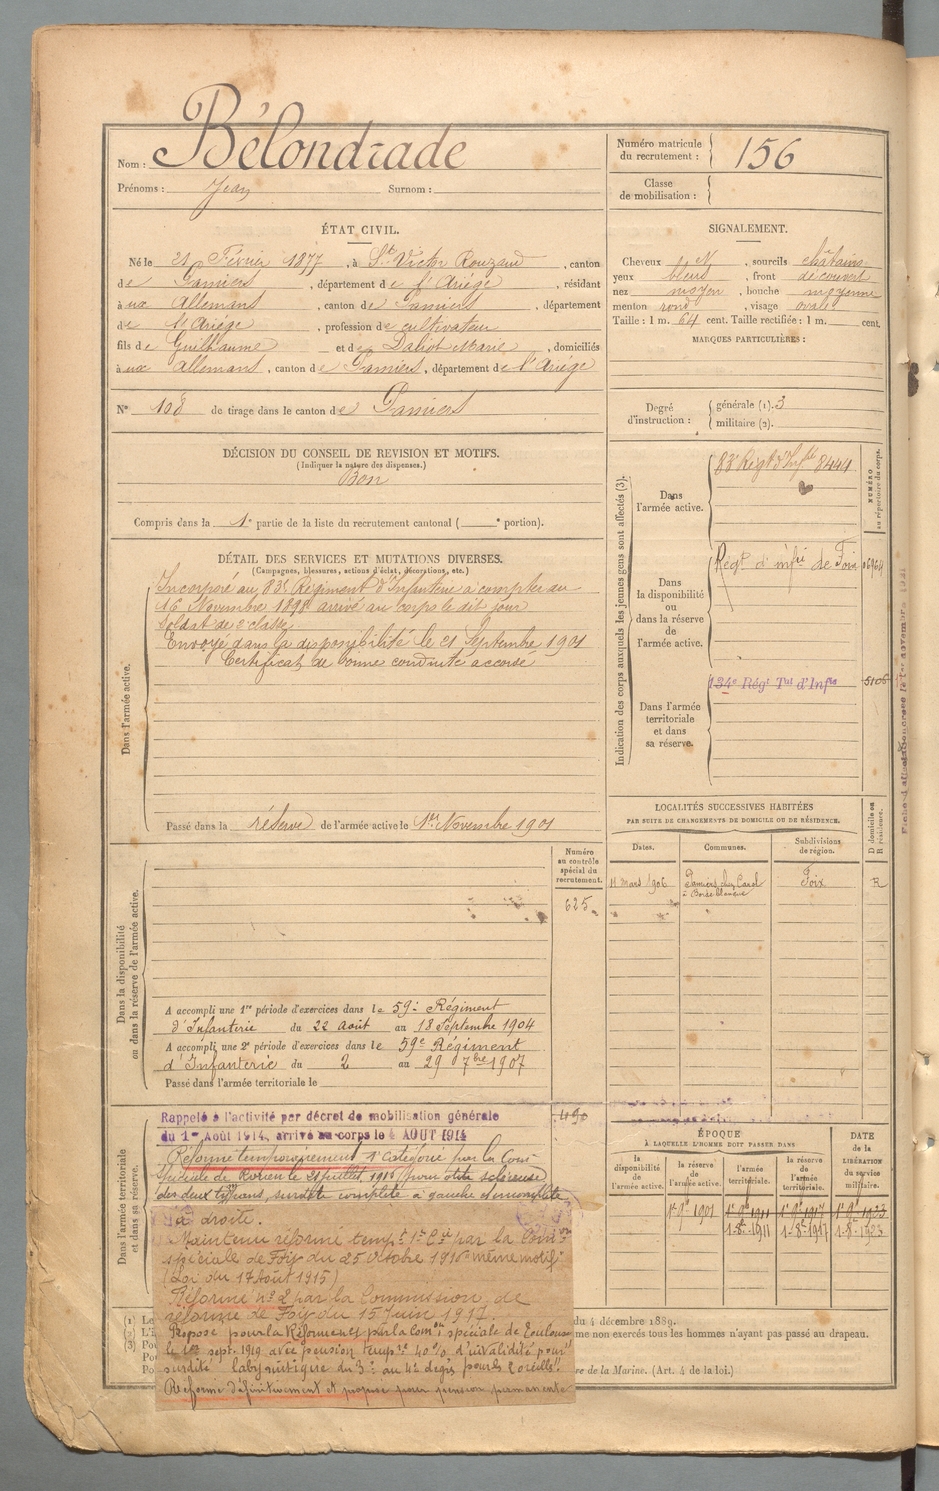 Nom : Bélondrade
Prénoms : Jean Surnom :
Numéro matricule du recrutement : 156
Classe de mobilisation :
ÉTAT CIVIL.
Né le 21 Février 1877, à St Victor Rouzaud, canton
de Pamiers, département de l'Ariège, résidant
à ux Allemans, canton de Pamiers, département
de l'Ariège, profession de cultivateur
fils de Guilhaume et de Dabiot Marie, domiciliés
à ux Allemans, canton de Pamiers, département de l'Ariège
N° 108 de tirage dans le canton de Pamiers
SIGNALEMENT.
Cheveux et N, sourcils châtains
yeux bleus, front découvert
nez moyen, bouche moyenne
menton rond, visage ovale
Taille : 1 m. 64 cent. Taille rectifiée : 1 m. cent.
MARQUES PARTICULIÈRES :
Degré d'instruction : générale (1). 3
militaire (2).
DÉCISION DU CONSEIL DE REVISION ET MOTIFS.
(Indiquer la nature des dispenses.)
Bon
Compris dans la 1e partie de la liste du recrutement cantonal ( e portion).
DÉTAIL DES SERVICES ET MUTATIONS DIVERSES.
(Campagnes, blessures, actions d'éclat, décorations, etc.)
Dans l'armée active.
Incorporé au 83e Régiment d'Infanterie à compter du
16 Novembre 1898 arrivé au corps le dit jour
Soldat de 2e classe
Envoyé dans la disponibilité le 21 Septembre 1901
Certificat de bonne conduite accordé
Passé dans la réserve de l'armée active le 1er Novembre 1901
Indication des corps auxquels les jeunes gens sont affectés (3).
NUMÉRO au répertoire du corps.
Dans l'armée active.
83e Régt d'Infie 8444
Dans la disponibilité ou dans la réserve de l'armée active.
Régt d'infie de Foix
Dans l'armée territoriale et dans sa réserve.
134e Régt Tal d'Infie 5106
LOCALITÉS SUCCESSIVES HABITÉES
PAR SUITE DE CHANGEMENTS DE DOMICILE OU DE RÉSIDENCE.
Dates. Communes. Subdivisions de région. D domicile ou R résidence.
11 mars 1906 Pamiers chez Carol à Borde blanque Foix R
Dans la disponibilité ou dans la réserve de l'armée active.
Numéro au contrôle spécial du recrutement.
625
A accompli une 1re période d'exercices dans le 59e Régiment
d'Infanterie du 22 août au 18 Septembre 1904
A accompli une 2e période d'exercices dans le 59e Régiment
d'Infanterie du 2 au 29 7bre 1907
Passé dans l'armée territoriale le
Dans l'armée territoriale et dans sa réserve.
490
Rappelé à l'activité par décret de mobilisation générale
du 1er Août 1914, arrivé au corps le 4 AOUT 1914
Réformé temporairement 1e catégorie par la Com
spéciale de Rouen le 21 juillet 1916 pour otite scléreuse
des deux tympans, surdité complète à gauche et incomplète
à droite.
Maintenu réformé tempre 1e Cie par la Comon
spéciale de Foix du 25 Octobre 1916 même motif
(Loi du 17 Août 1915)
Réformé n° 2 par la Commission de
réforme de Foix du 15 Juin 1917.
Proposé pour la Réforme n°1 par la Comon spéciale de Toulouse
le 1er sept. 1919 avec pension tempre 40% d'invalidité pour
surdité labyrintique du 3e au 4e degré pour les 2 oreilles.
Réformé définitivement et proposé pour pension permanente
ÉPOQUE
À LAQUELLE L'HOMME DOIT PASSER DANS
la disponibilité de l'armée active. la réserve de l'armée active. l'armée territoriale. la réserve de l'armée territoriale. DATE de la LIBÉRATION du service militaire.
1er 9bre 1901 1er 9bre 1911 1er 9bre 1917 1er 9bre 1923
1-8-1911 1-8-1917 1-8-1923
du 4 décembre 1889.
me non exercés tous les hommes n'ayant pas passé au drapeau.
re de la Marine. (Art. 4 de la loi.)